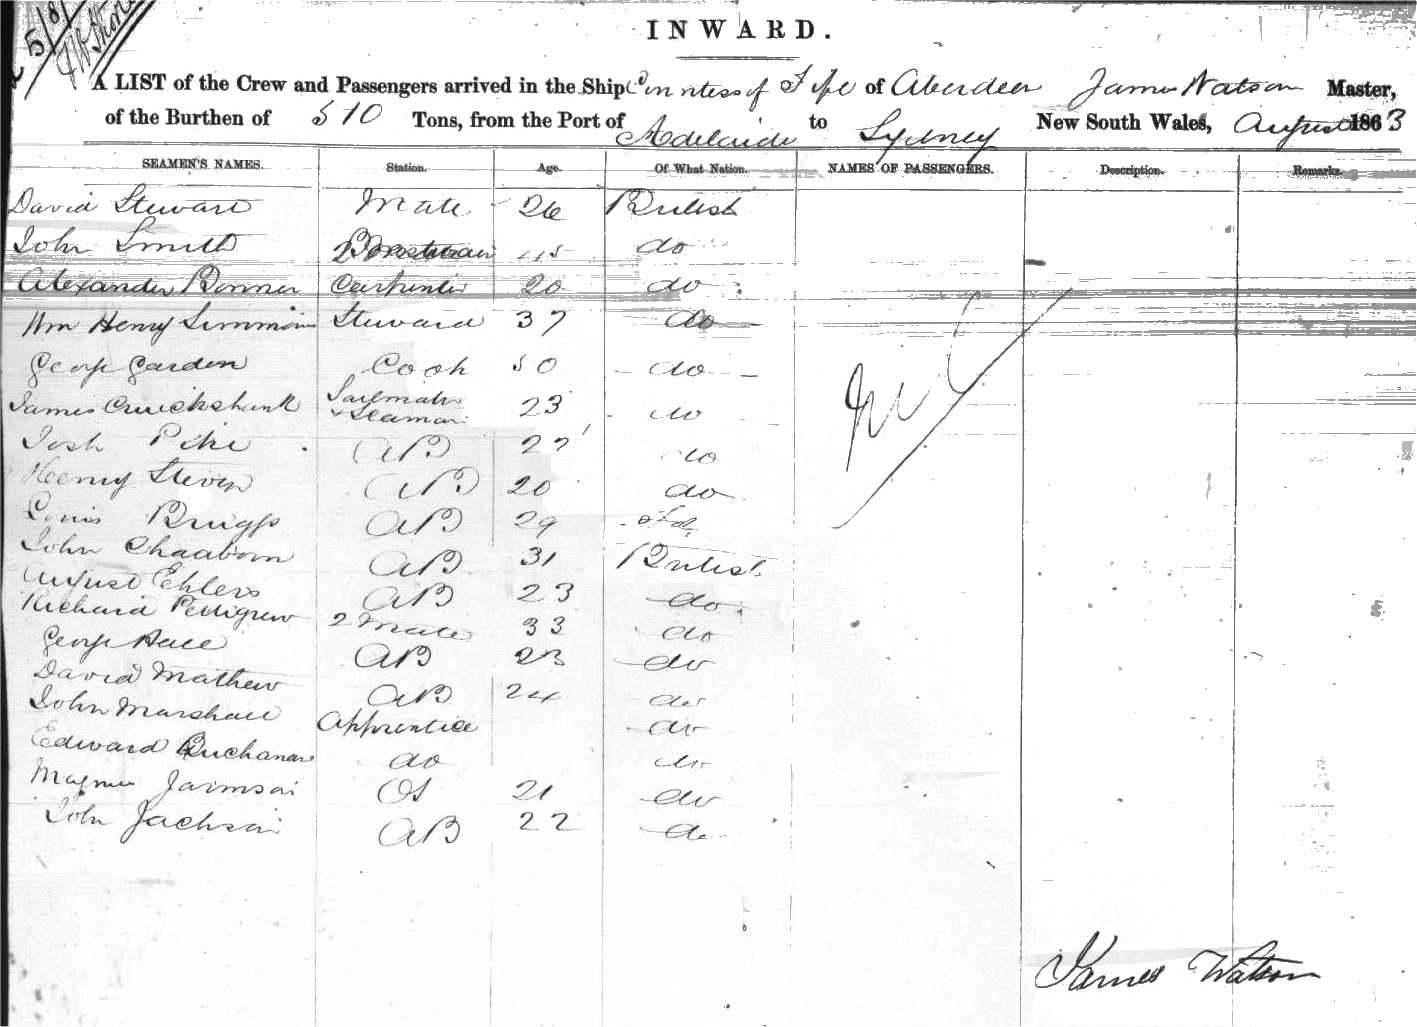 5/8/
INWARD.
A LIST of the Crew and Passengers arrived in the Ship Countess of Fife of Aberdeen James Watson Master,
of the Burthen of 510 Tons, from the Port of Adelaide to Sydney New South Wales, August 1863
SEAMEN'S NAMES. Station. Age. Of What Nation. NAMES OF PASSENGERS. Description. Remarks.
David Stewart Mate 26 British
John Smith Boatswain do
Alexander Bonner Carpenter 20 do
Wm Henry Simmons Steward 37 do
George Garden Cook 50 do
James Cruickshank Sailmaker & Seaman 23 do
Josh Pike AB 22 do
Henry Steven AB 20 do
Louis Briggs AB 29
John Chaaborn AB 31 British
August Ehlers AB 23 do
Richard Pettigrew 2 Mate 33 do
George Hall AB 23 do
David Mathew AB 24 do
John Marshall Apprentice do
Edward Buchanan do do
Magnus Jaimson OS 21 do
John Jackson AB 22 do
Nil
James Watson